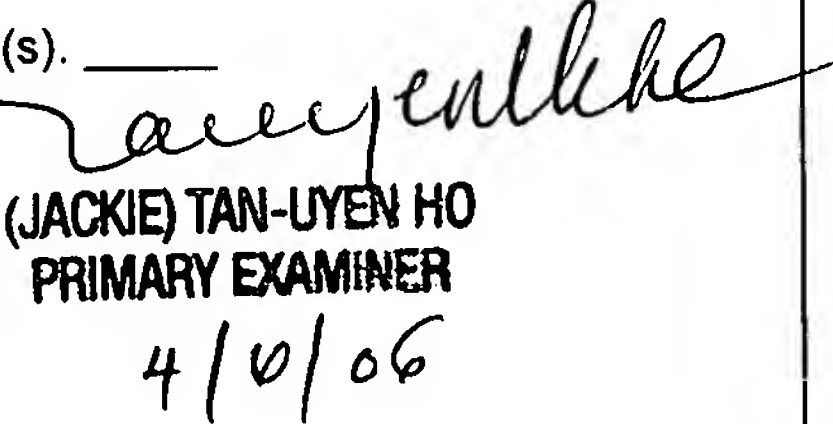 (s). ______
(JACKIE) TAN-UYEN HO
PRIMARY EXAMINER
4/6/06